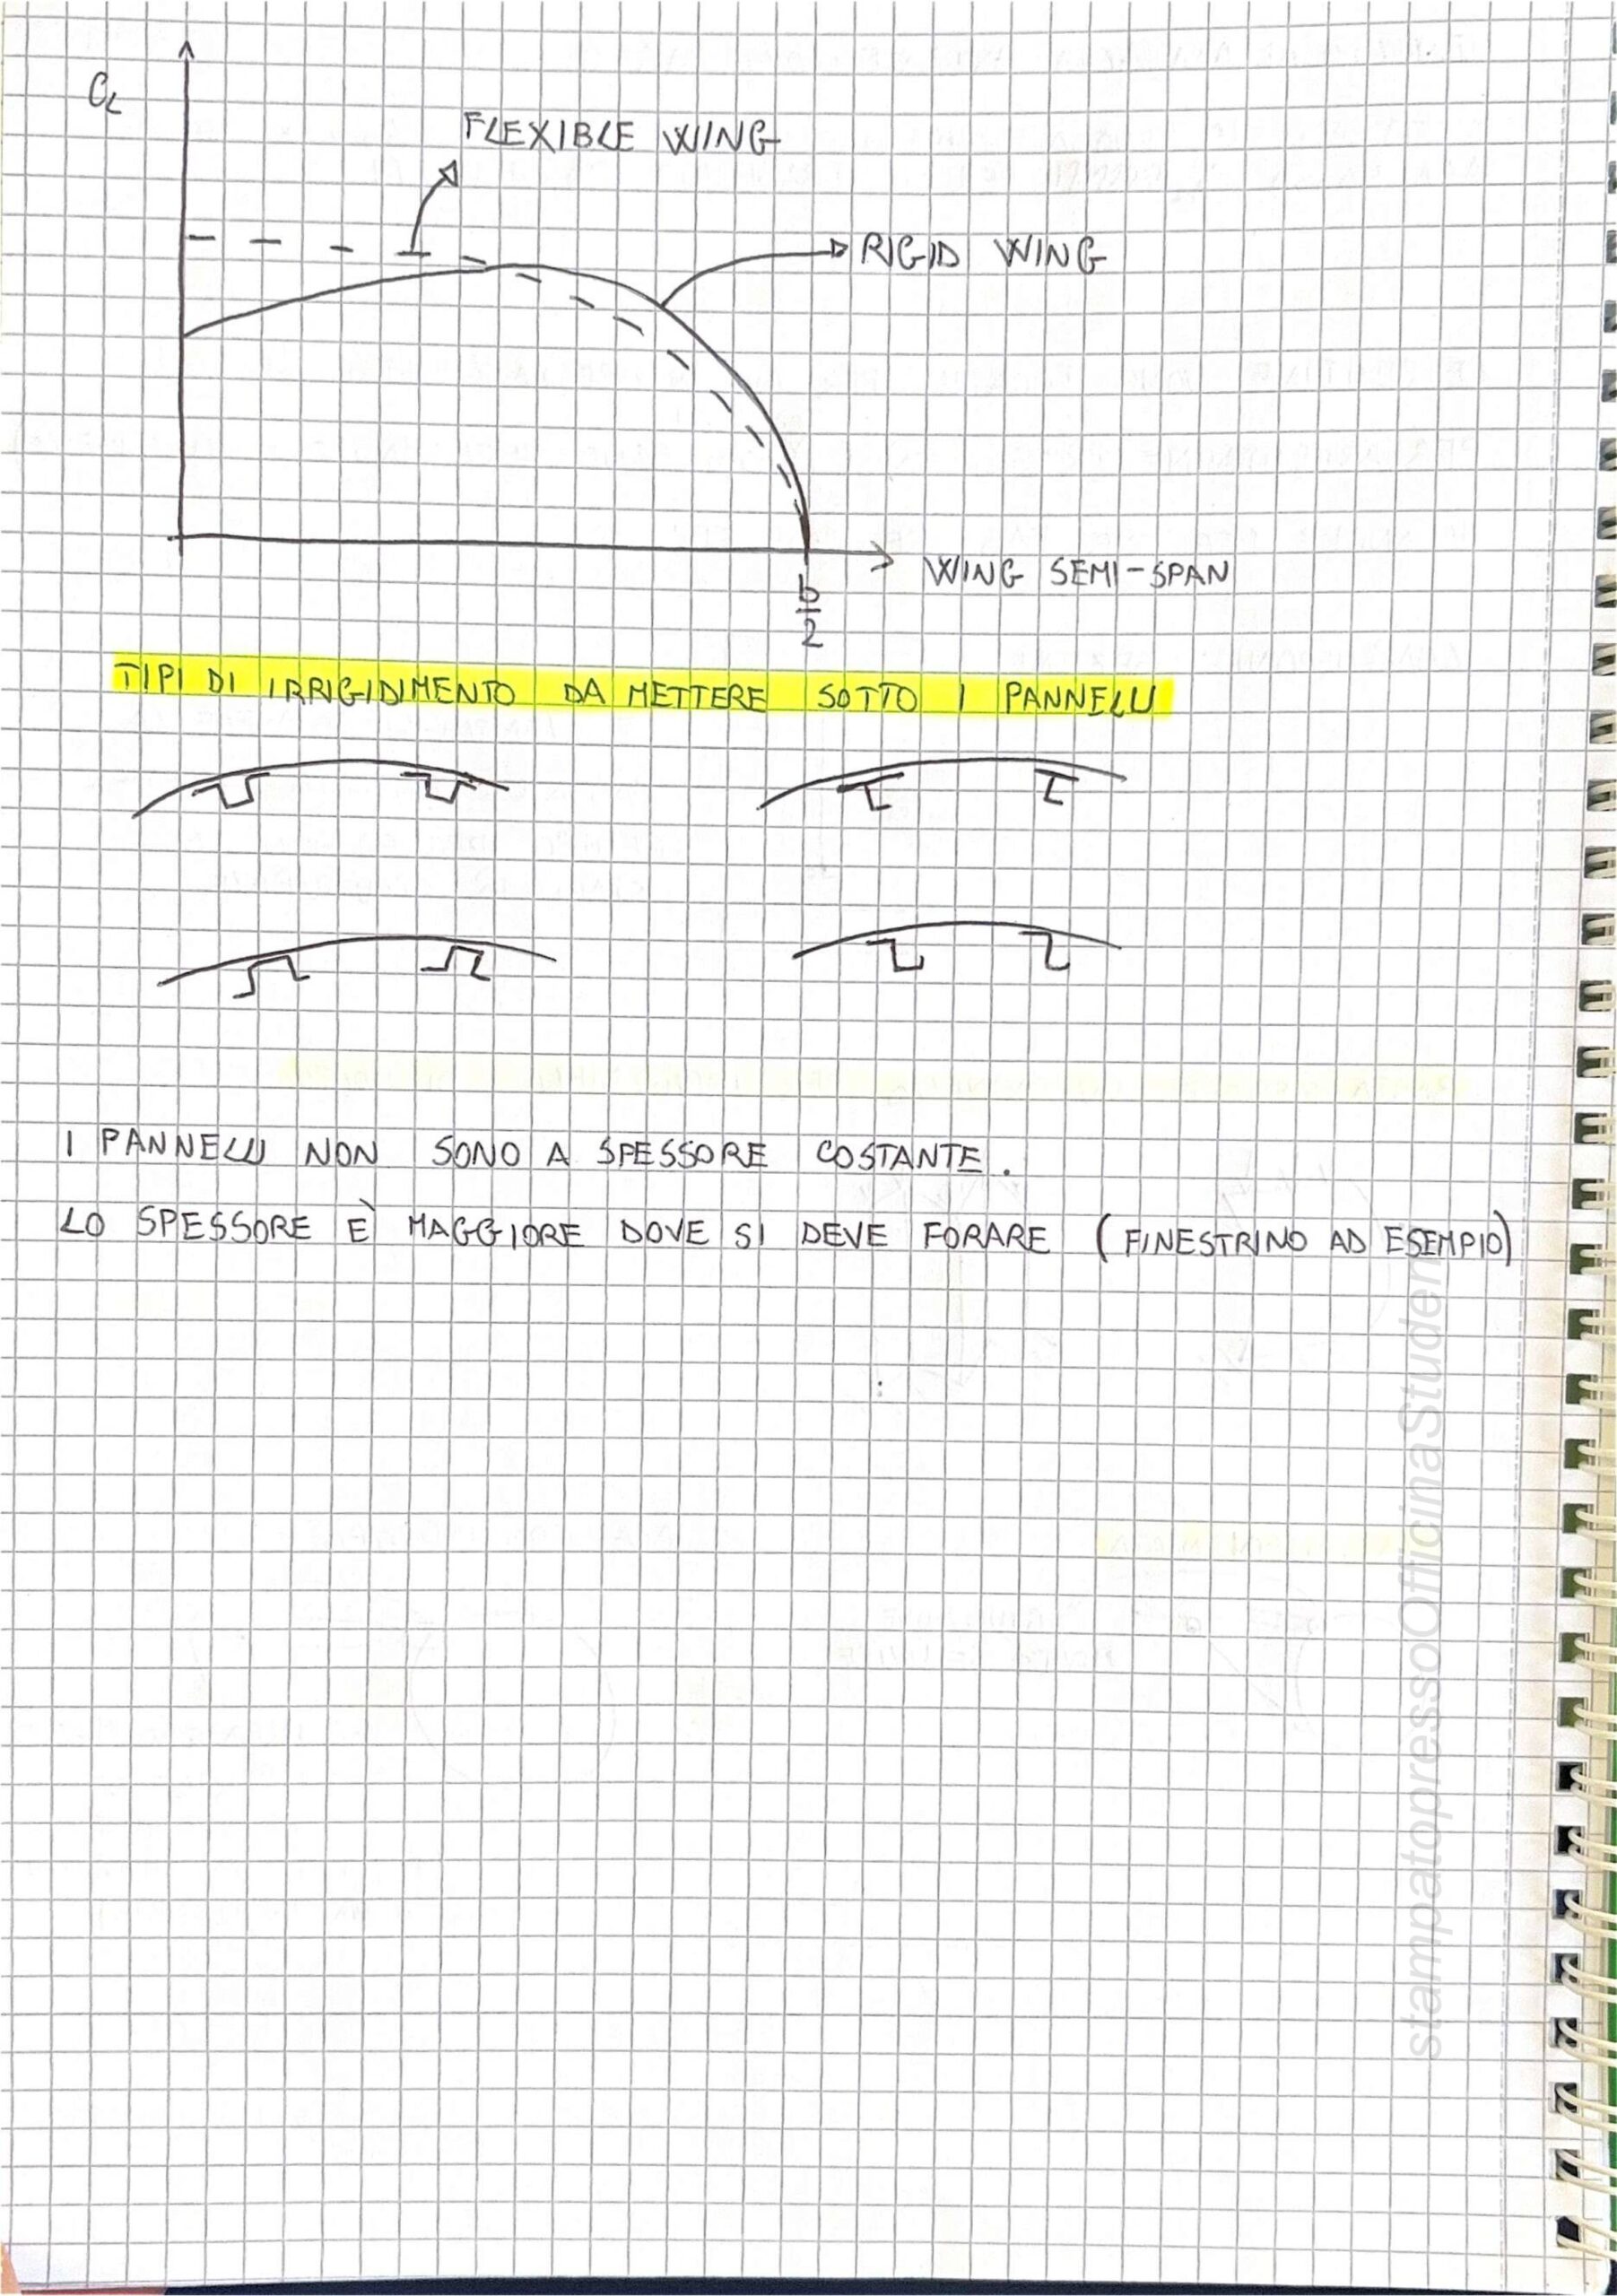 CL
FLEXIBLE WING
RIGID WING
WING SEMI-SPAN
b
2
TIPI DI IRRIGIDIMENTO DA METTERE SOTTO I PANNELLI
I PANNELLI NON SONO A SPESSORE COSTANTE.
LO SPESSORE È MAGGIORE DOVE SI DEVE FORARE (FINESTRINO AD ESEMPIO)
stampatopressoOfficinaStudenti